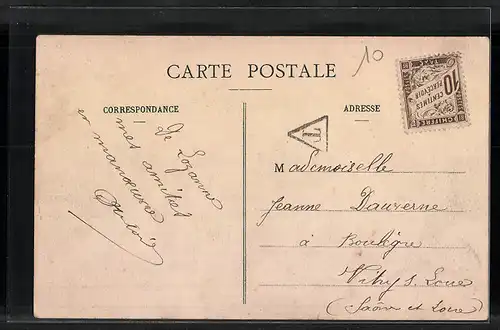 10
CARTE POSTALE
CORRESPONDANCE
ADRESSE
10
CENTIMES
A PERCEVOIR
CHIFFRE
TAXE
T
De Lozanne
mes amitiés
et manoeuvre
Mademoiselle
Jeanne Dauverne
à
Vitry s. Loire
(Saône et Loire)